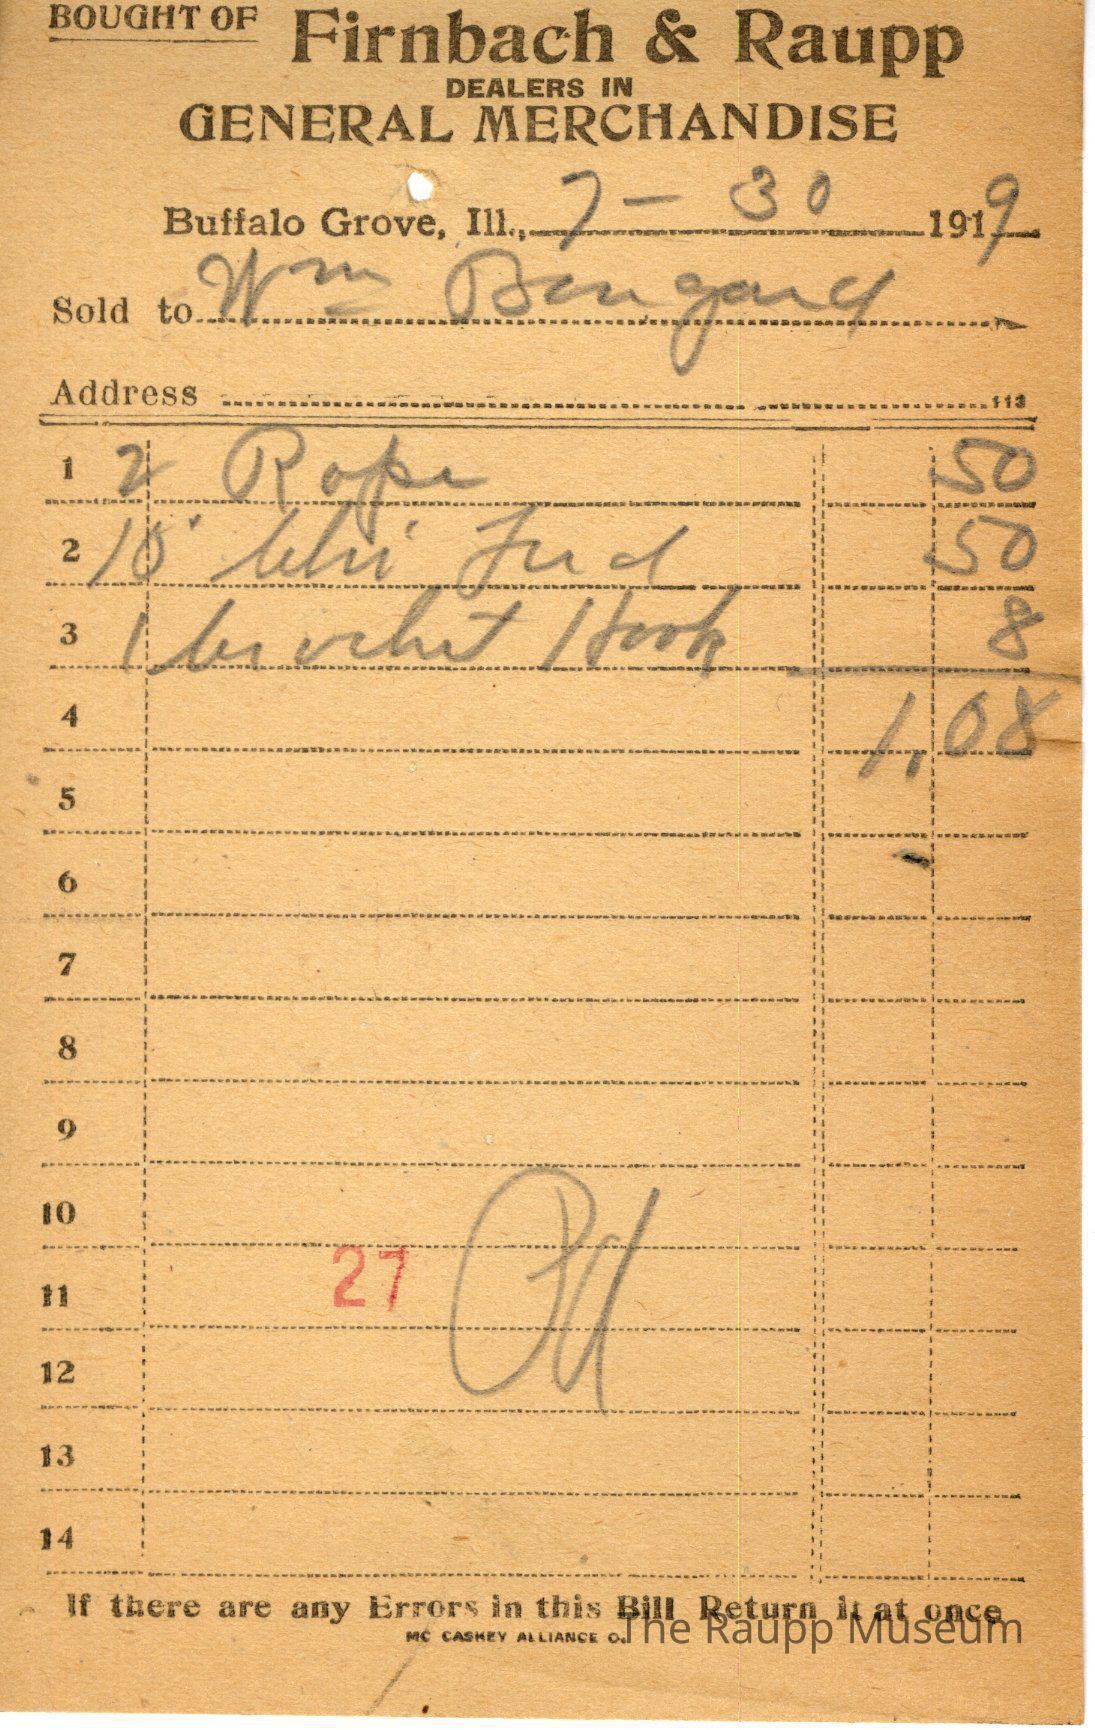 BOUGHT OF Firnbach & Raupp
DEALERS IN
GENERAL MERCHANDISE
Buffalo Grove, Ill., 7 - 30 1919
Sold to Wm Bongard
Address 113
1 2 Rope 50
2 10 Chi Feed 50
3 1 Crochet Hook 8
4 1.08
5
6
7
8
9
10
27 Pd
11
12
13
14
If there are any Errors in this Bill Return it at once
MC CASKEY ALLIANCE O.
The Raupp Museum